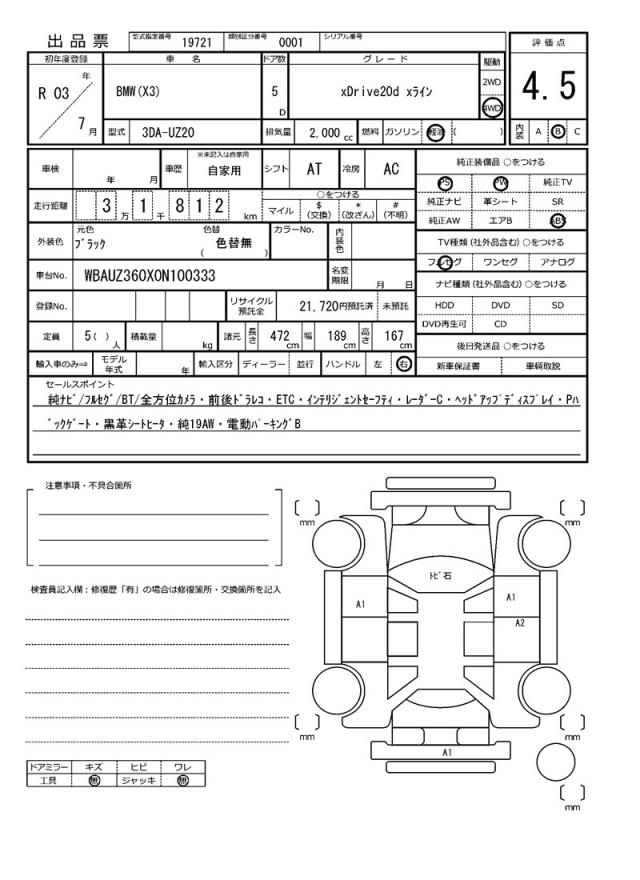 出品票 型式指定番号 19721 類別区分番号 0001 シリアル番号
評価点
4.5
初年度登録 車名 ドア数 グレード 駆動
R 03 年 7 月
BMW(X3) 5 D xDrive20d xライン 2WD 4WD
型式 3DA-UZ20 排気量 2,000 cc 燃料 ガソリン 軽油 ( )
内装 A B C
車検 年 月 車歴 ※未記入は自家用 自家用 シフト AT 冷房 AC
走行距離 3 万 1 千 8 1 2 km
○をつける
マイル $(交換) *(改ざん) #(不明)
外装色 元色 ブラック 色替 色替無 ( ) カラーNo. 内装色
車台No. WBAUZ360X0N100333 名変期限 月 日
登録No. リサイクル預託金 21,720円預託済 未預託
定員 5( ) 人 積載量 kg 諸元 長さ 472 cm 幅 189 cm 高さ 167 cm
輸入車のみ⇒ モデル年式 年 輸入区分 ディーラー 並行 ハンドル 左 右
純正装備品 ○をつける
PS PW 純正TV
純正ナビ 革シート SR
純正AW エアB ABS
TV種類(社外品含む)○をつける
フルセグ ワンセグ アナログ
ナビ種類(社外品含む)○をつける
HDD DVD SD
DVD再生可 CD
後日発送品 ○をつける
新車保証書 車輌取説
セールスポイント
純ナビ/フルセグ/BT/全方位カメラ・前後ドラレコ・ETC・インテリジェントセーフティ・レーダーC・ヘッドアップディスプレイ・Pバ
ックゲート・黒革シートヒータ・純19AW・電動パーキングB
注意事項・不具合箇所
検査員記入欄:修復歴「有」の場合は修復箇所・交換箇所を記入
mm mm
トビ石
A1 A1
A2
mm mm
A1
mm
ドアミラー キズ ヒビ ワレ
工具 無 ジャッキ 無